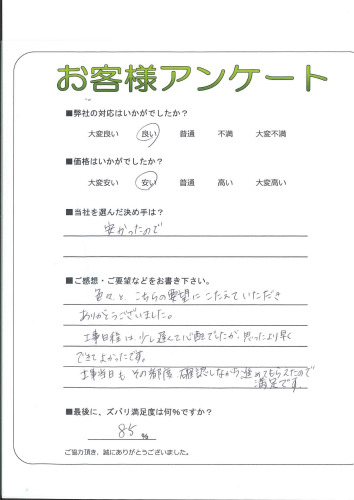 お客様アンケート
■弊社の対応はいかがでしたか？
大変良い 良い 普通 不満 大変不満
■価格はいかがでしたか？
大変安い 安い 普通 高い 大変高い
■当社を選んだ決め手は？
安かったので
■ご感想・ご要望などをお書き下さい。
色々と こちらの要望に こたえていただき
ありがとうございました。
工事日程は、少し遅くて心配でしたが、思ったより早く
できてよかったです。
工事当日も その都度 確認しながら進めてもらえたので
満足です。
■最後に、ズバリ満足度は何％ですか？
85 ％
ご協力頂き、誠にありがとうございました。